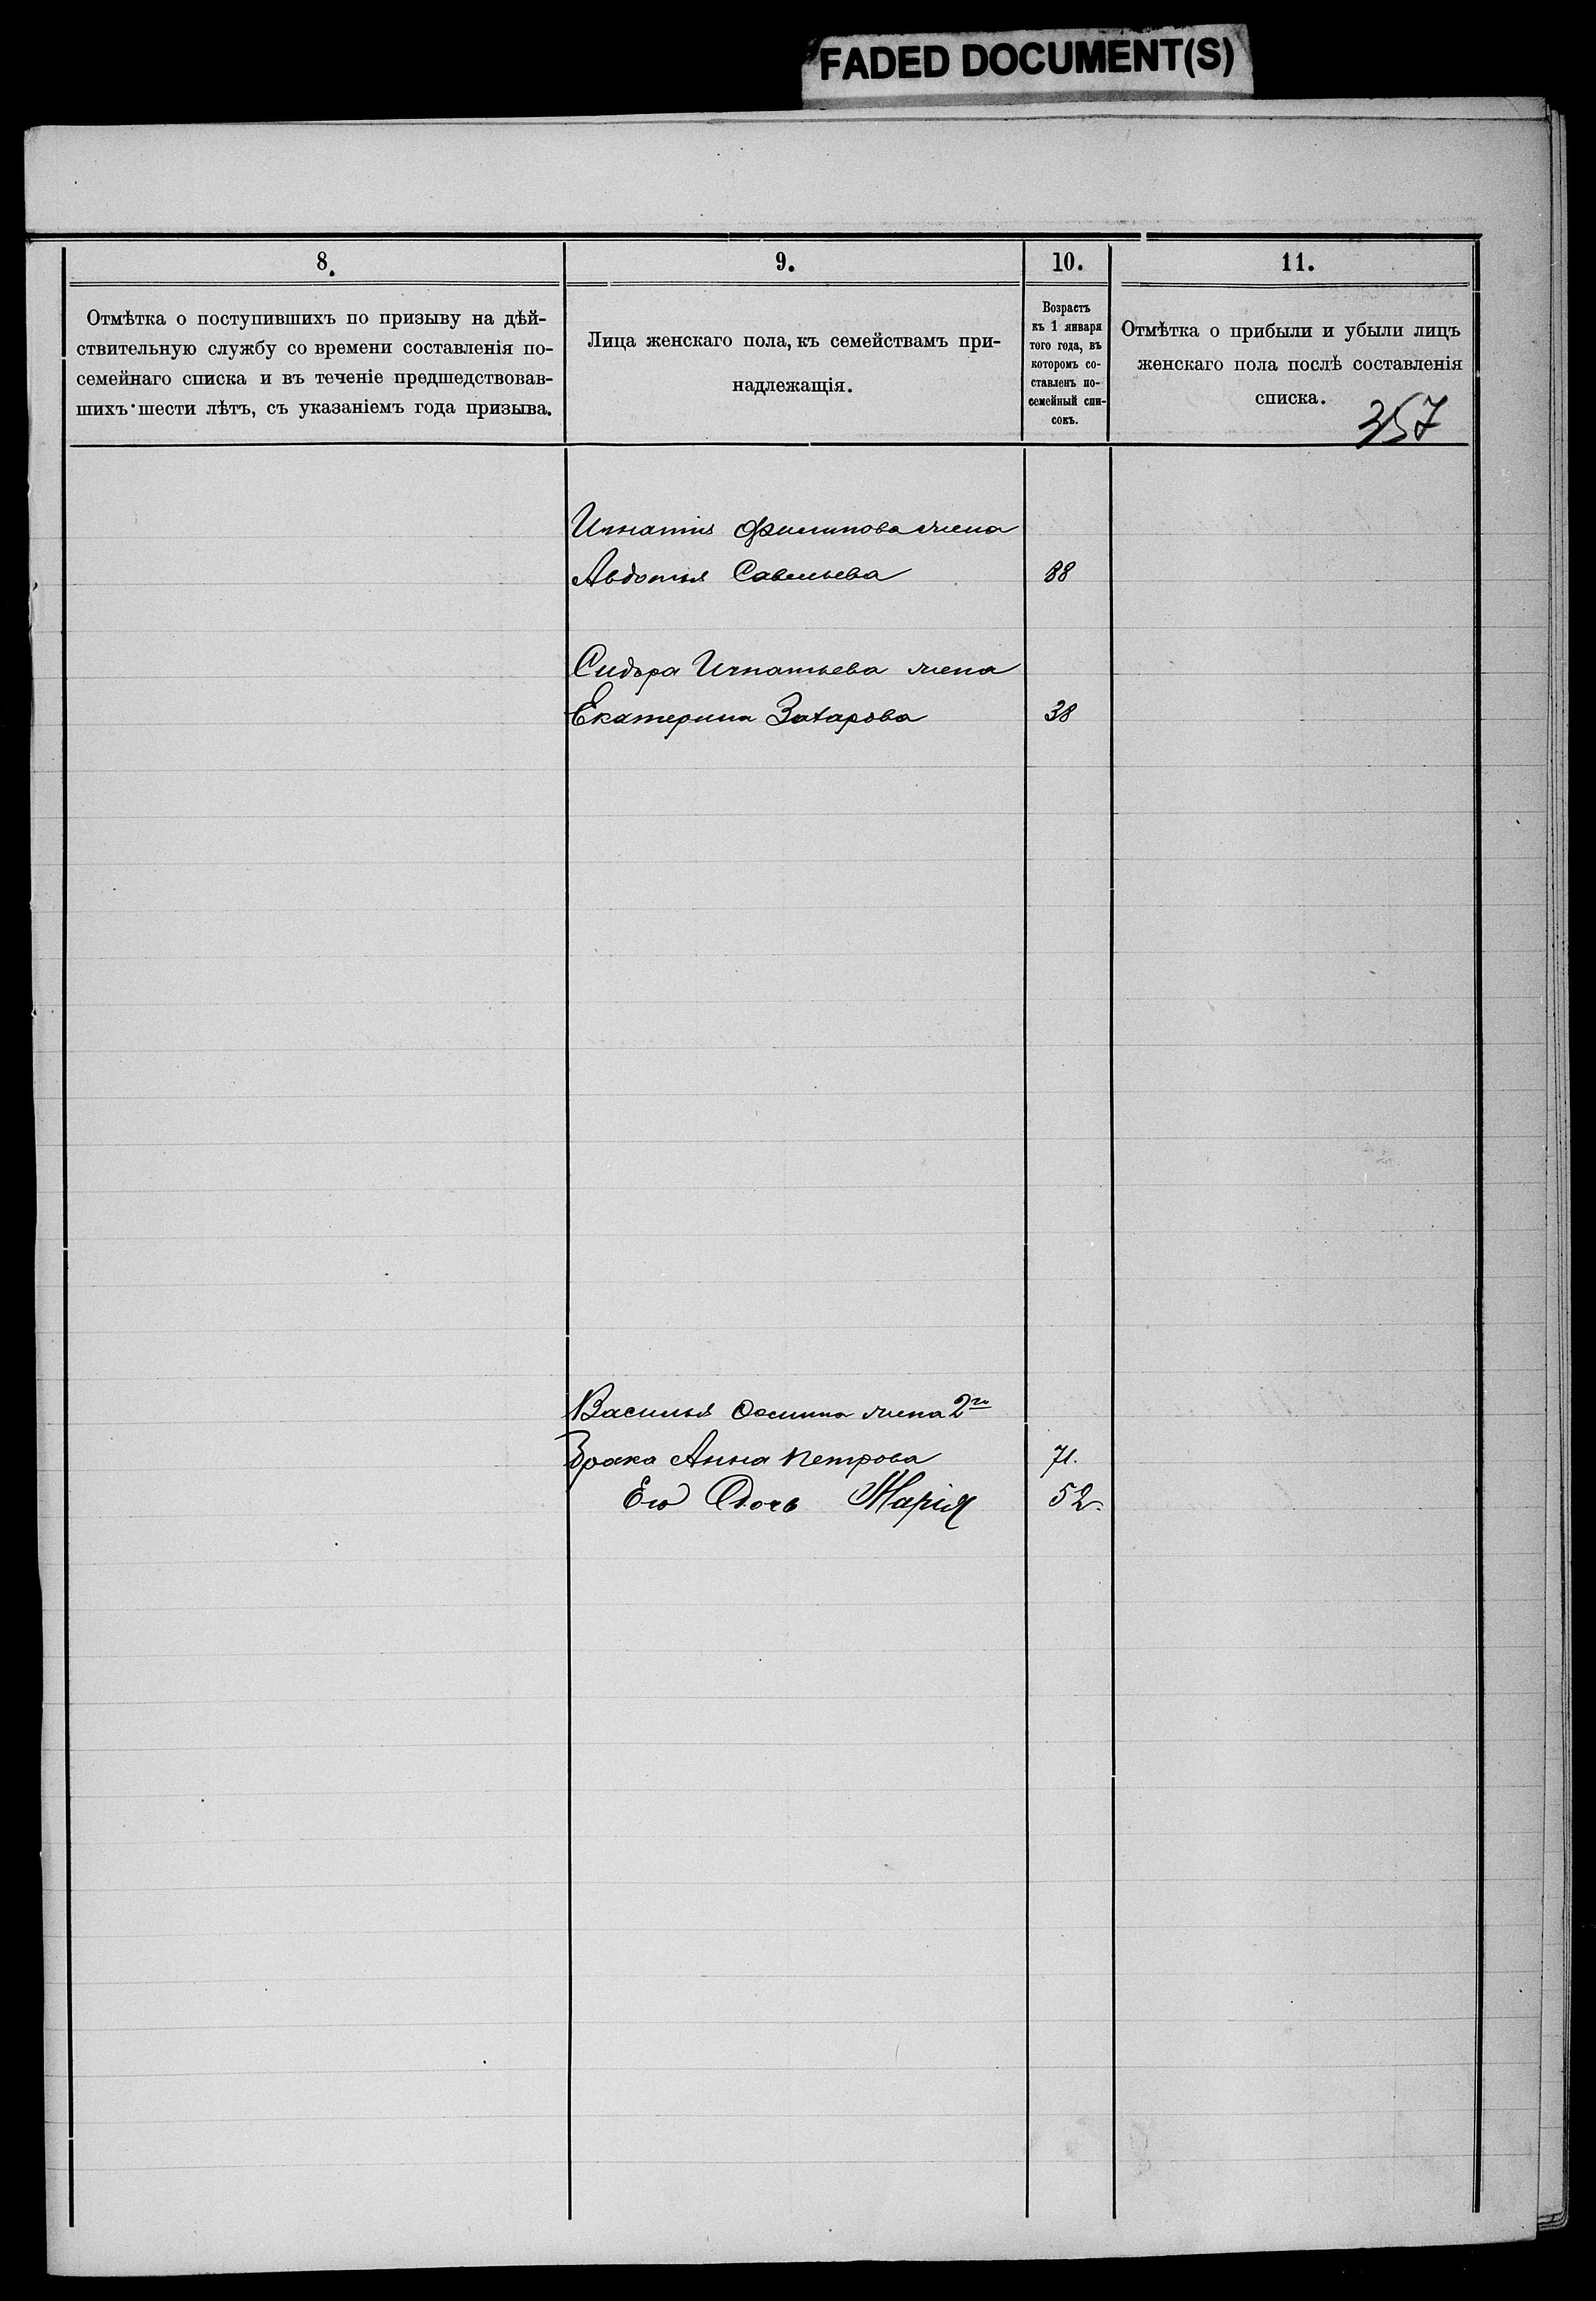 FADED DOCUMENT(S)
8.
Отмѣтка о поступившихъ по призыву на дѣй-
ствительную службу со времени составленія по-
семейнаго списка и въ теченіе предшедствовав-
шихъ шести лѣтъ, съ указаніемъ года призыва.
9.
Лица женскаго пола, къ семействамъ при-
надлежащія.
10.
Возрастъ
къ 1 января
того года, въ
которомъ со-
ставленъ по-
семейный спи-
сокъ.
11.
Отмѣтка о прибыли и убыли лицъ
женскаго пола послѣ составленія
списка.
357
Игнатія Филипова жена
Авдотья Савельева 88
Сидора Игнатьева жена
Екатерина Захарова 38
Василья Осипа жена 2го
брака Анна Петрова 71.
Его Дочь Марія 52.